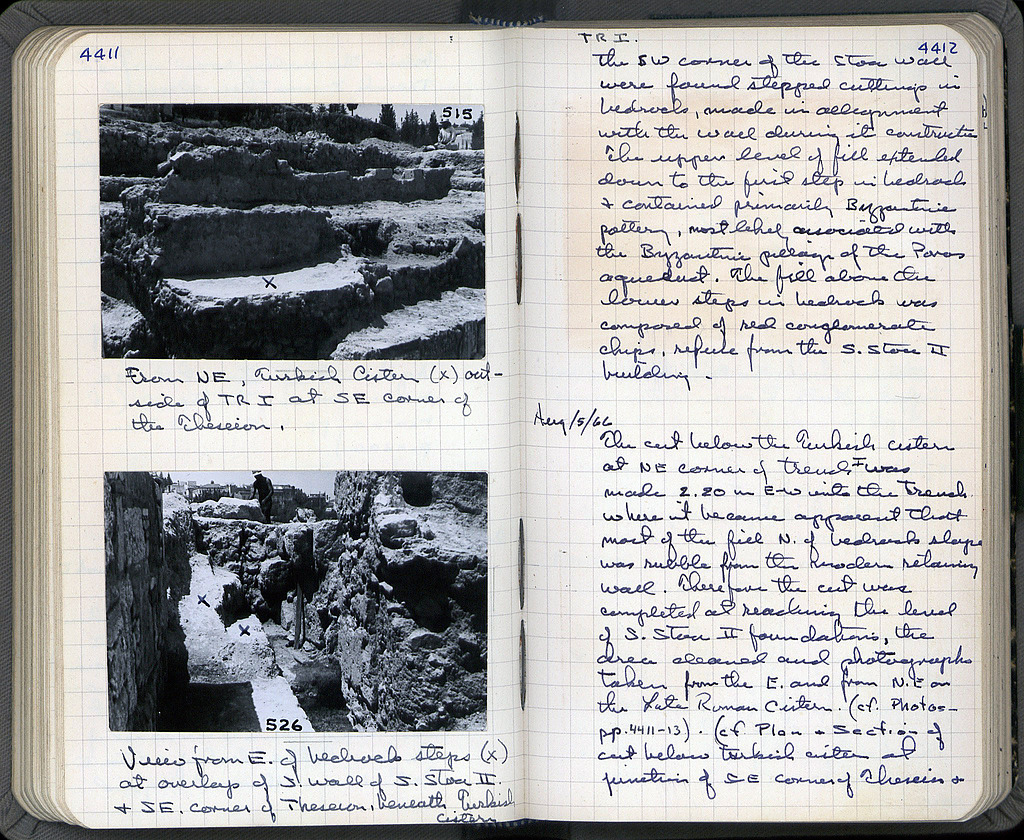 4411
515
From NE, Turkish Cistern (x) out-
side of TR I at SE corner of
the Theseion.
526
View from E. of bedrock steps (x)
at overlap of S. wall of S. Stoa II
+ SE. corner of Theseion, beneath Turkish
cistern
TR I.
4412
the SW corner of the Stoa wall
were found stepped cuttings in
bedrock, made in allignment
with the wall during it construction
The upper level of fill extended
down to the first step in bedrock
+ contained primarily Byzantine
pottery, most likely associated with
the Byzantine pillaging of the Poros
aqueduct. The fill above the
lower steps in bedrock was
composed of red conglomerate
chips, refuse from the S. Stoa II
building.
Aug/5/66
The cut below the Turkish cistern
at NE corner of trench I was
made 2.20 m E-W into the Trench
where it became apparent that
most of the fill N. of bedrock slope
was rubble from the modern retaining
wall. Therefore the cut was
completed at reaching the level
of S. Stoa II foundations, the
area cleaned and photographs
taken from the E. and from N.E on
the Late Roman Cistern. (cf. Photos-
pp. 4411-13). (cf. Plan + Section of
cut below Turkish cistern at
junction of SE corner of Theseion +